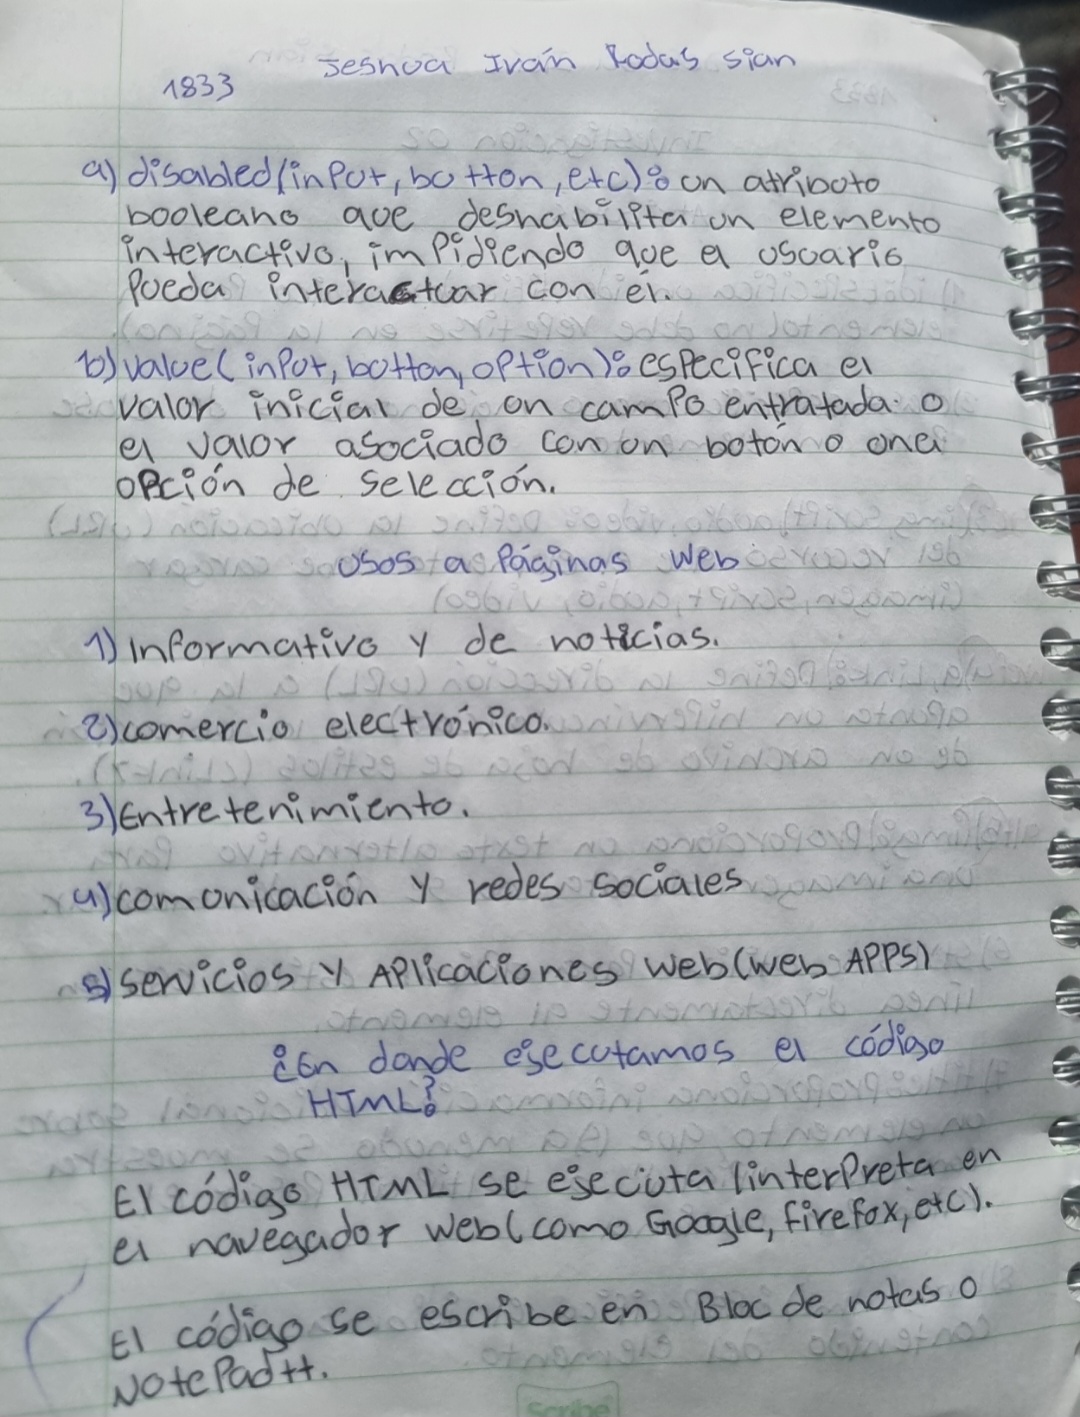 Jeshua Iván Rodas sian
1833
a) disabled(input, button, etc): un atributo
booleano que deshabilita un elemento
interactivo, impidiendo que el usuario
Pueda interactuar con él.
b) value(input, button, option): especifica el
valor inicial de un campo entratada o
el valor asociado con un botón o una
opción de selección.
usos a Páginas web
1) Informativo y de noticias.
2) comercio electrónico.
3) Entretenimiento.
4) comunicación y redes sociales
5) servicios y Aplicaciones web(web APPS)
¿En donde ejecutamos el código
HTML?
El código HTML se ejecuta (interpreta en
el navegador web(como Google, firefox, etc).
El código se escribe en Bloc de notas o
NotePad++.
Scribe